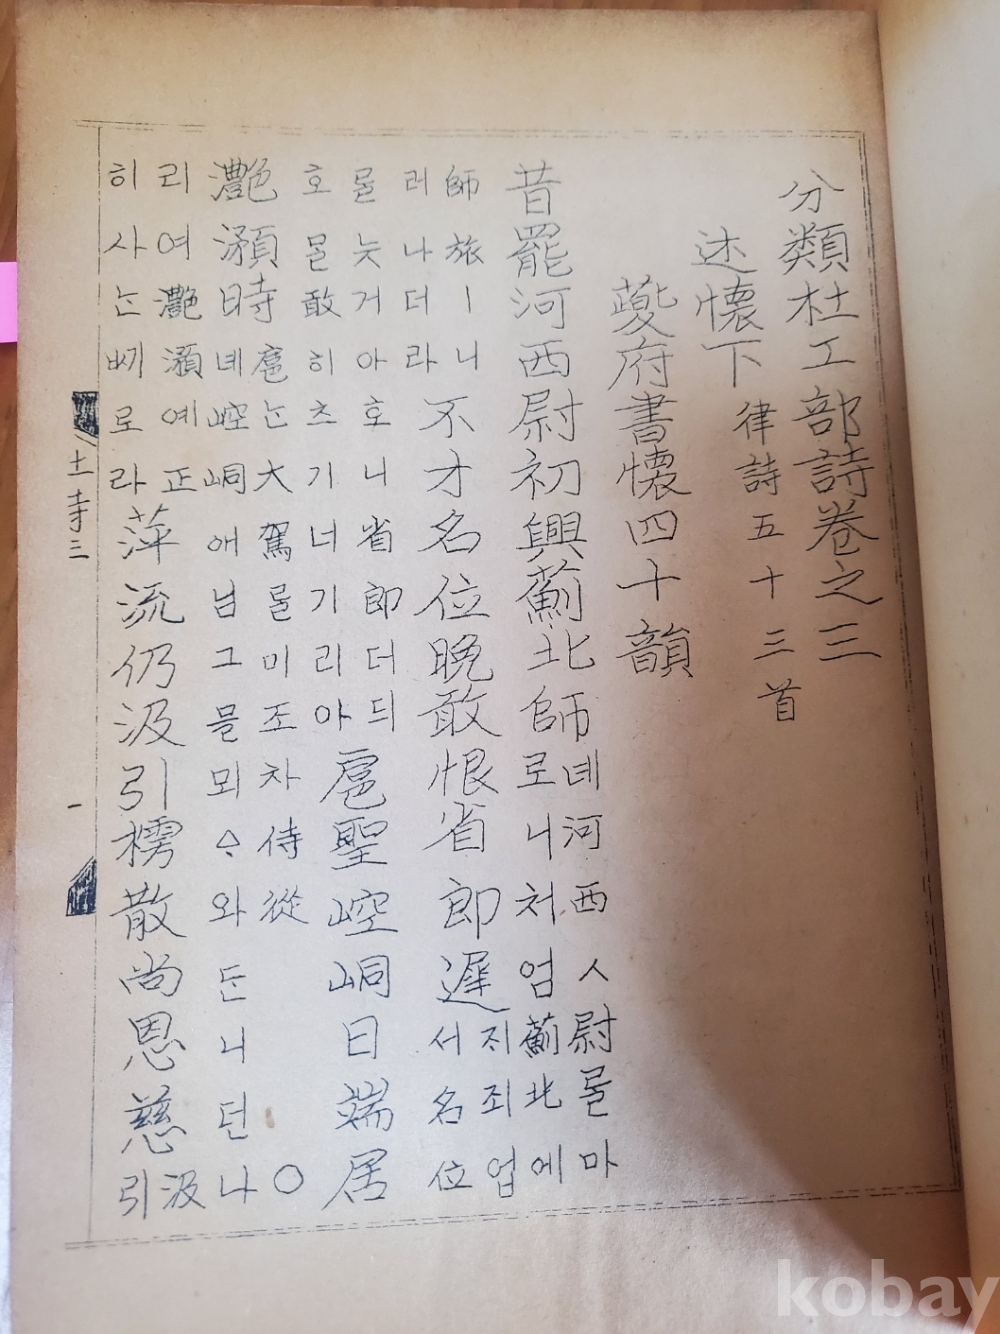 分類杜工部詩卷之三
述懷下 律詩五十三首
夔府書懷四十韻
昔罷河西尉初興薊北師
녜河西ㅅ尉ᄅᆞᆯ마
로니처엄薊北에
師旅ㅣ니
러나더라
不才名位晚敢恨省郎遲
지죄업
서名位
ᄅᆞᆯ늣거아호니省郎더듸
호ᄆᆞᆯ敢히츠기너기리아
扈聖崆峒日端居
灔澦時
扈ᄂᆞᆫ大駕ᄅᆞᆯ미조차侍從○
녜崆峒애님그ᄆᆞᆯ뫼ᅀᆞ와ᄃᆞᆫ니던나
리여灔澦예正
히사ᄂᆞᆫᄢᅵ로라
萍流仍汲引樗散尚恩慈
汲
引
土寺三
kobay